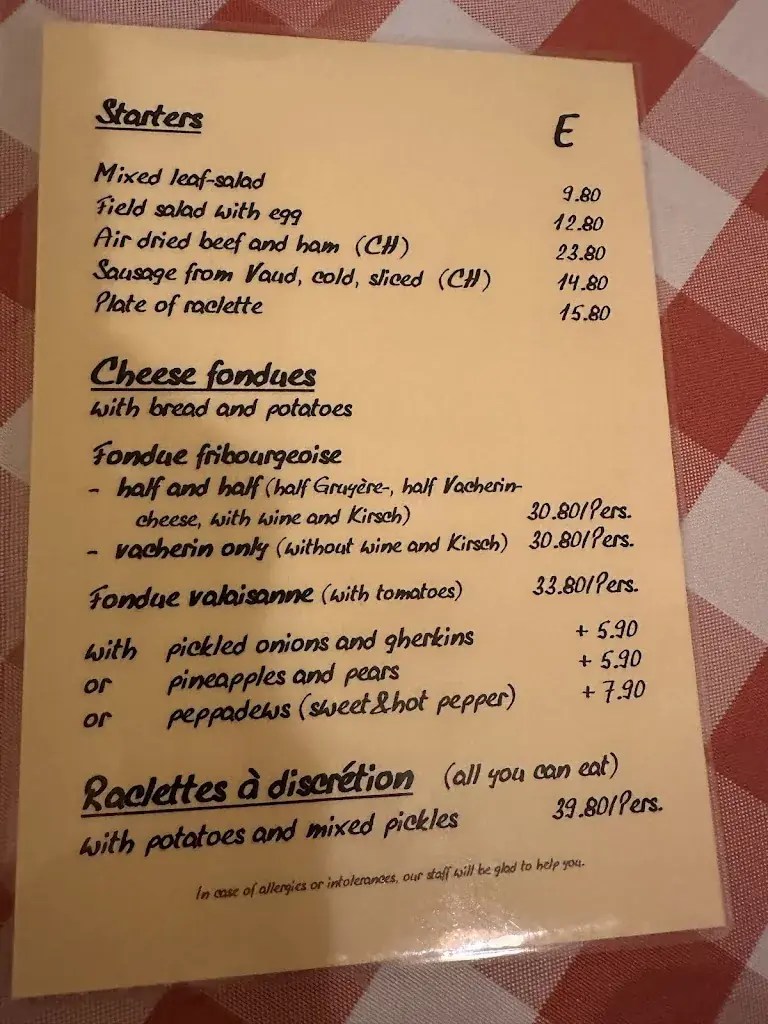 Starters
E
Mixed leaf-salad 9.80
Field salad with egg 12.80
Air dried beef and ham (CH) 23.80
Sausage from Vaud, cold, sliced (CH) 14.80
Plate of raclette 15.80
Cheese fondues
with bread and potatoes
Fondue fribourgeoise
- half and half (half Gruyère-, half Vacherin-
cheese, with wine and Kirsch) 30.80/Pers.
- vacherin only (without wine and Kirsch) 30.80/Pers.
Fondue valaisanne (with tomatoes) 33.80/Pers.
with pickled onions and gherkins + 5.90
or pineapples and pears + 5.90
or peppadews (sweet&hot pepper) + 7.90
Raclettes à discrétion (all you can eat)
with potatoes and mixed pickles 39.80/Pers.
In case of allergies or intolerances, our staff will be glad to help you.